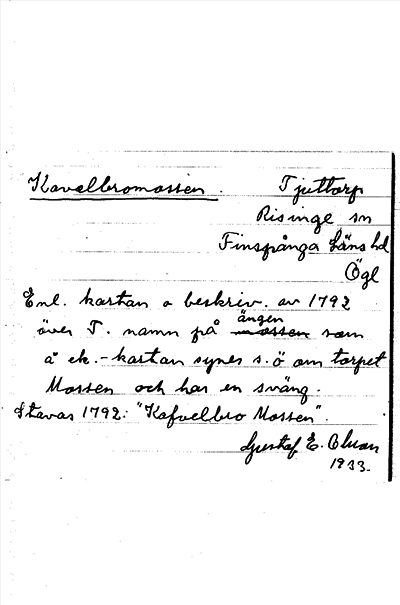 Kavelbromossen. Tjuttorp
Risinge sn
Finspånga Läns hd
Ögl
Enl. kartan o beskriv. av 1792
över T. namn på mossen ängen som
å ek.-kartan synes s.ö om torpet
Mossen och har en sväng.
Stavas 1792: "Kafvelbro Mossen".
Gustaf E. Olson
1933.